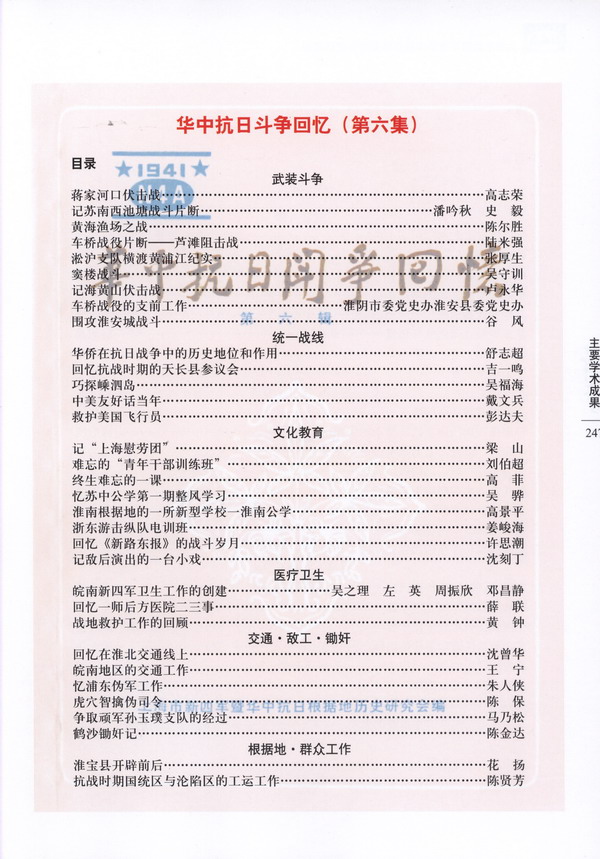 华中抗日斗争回忆（第六集）
目录
★1941★
N4A
武装斗争
蒋家河口伏击战…………高志荣
记苏南西池塘战斗片断…………潘吟秋 史 毅
黄海渔场之战…………陈尔胜
车桥战役片断——芦滩阻击战…………陆米强
淞沪支队横渡黄浦江纪实…………张厚生
窦楼战斗…………吴守训
记海黄山伏击战…………卢永华
车桥战役的支前工作…………淮阴市委党史办淮安县委党史办
围攻淮安城战斗…………谷 风
华中抗日斗争回忆
第六辑
统一战线
华侨在抗日战争中的历史地位和作用…………舒志超
回忆抗战时期的天长县参议会…………吉一鸣
巧探嵊泗岛…………吴福海
中美友好话当年…………戴文兵
救护美国飞行员…………彭达夫
文化教育
记“上海慰劳团”…………梁 山
难忘的“青年干部训练班”…………刘伯超
终生难忘的一课…………高 菲
忆苏中公学第一期整风学习…………吴 骅
淮南根据地的一所新型学校—淮南公学…………高景平
浙东游击纵队电训班…………姜峻海
回忆《新路东报》的战斗岁月…………许思潮
记敌后演出的一台小戏…………沈刻丁
医疗卫生
皖南新四军卫生工作的创建…………吴之理 左 英 周振欣 邓昌静
回忆一师后方医院二三事…………薛 联
战地救护工作的回顾…………黄 钟
交通·敌工·锄奸
回忆在淮北交通线上…………沈曾华
皖南地区的交通工作…………王 宁
忆浦东伪军工作…………朱人侠
虎穴智擒伪司令…………陈 保
上海市新四军暨华中抗日根据地历史研究会编
争取顽军孙玉璞支队的经过…………马乃松
鹤沙锄奸记…………陈金达
根据地·群众工作
淮宝县开辟前后…………花 扬
抗战时期国统区与沦陷区的工运工作…………陈贤芳
主要学术成果
247